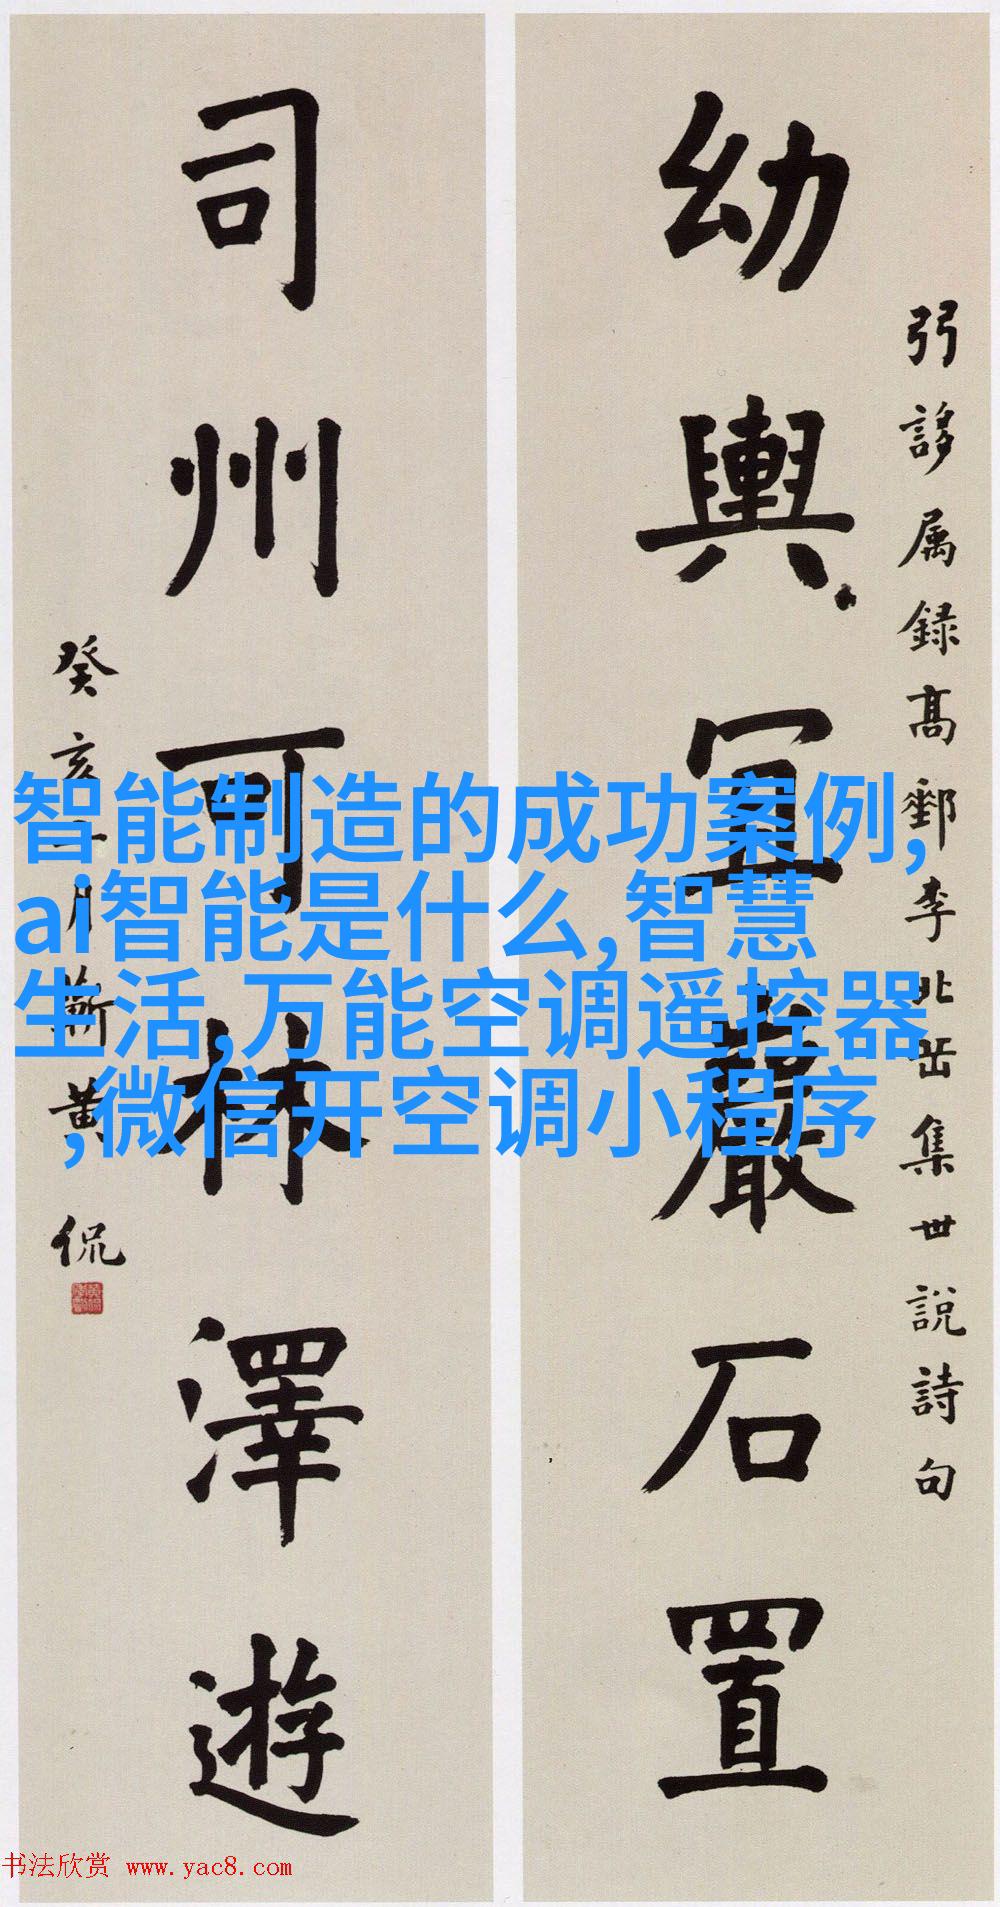 弜誃属録高郵李北岳集世說詩句
幼輿宜巖石置
司州可林澤遊
癸亥十月蘄黄侃
智能制造的成功案例,
ai智能是什么,智慧
生活,万能空调遥控器
,微信开空调小程序
书法欣赏 www.yac8.com